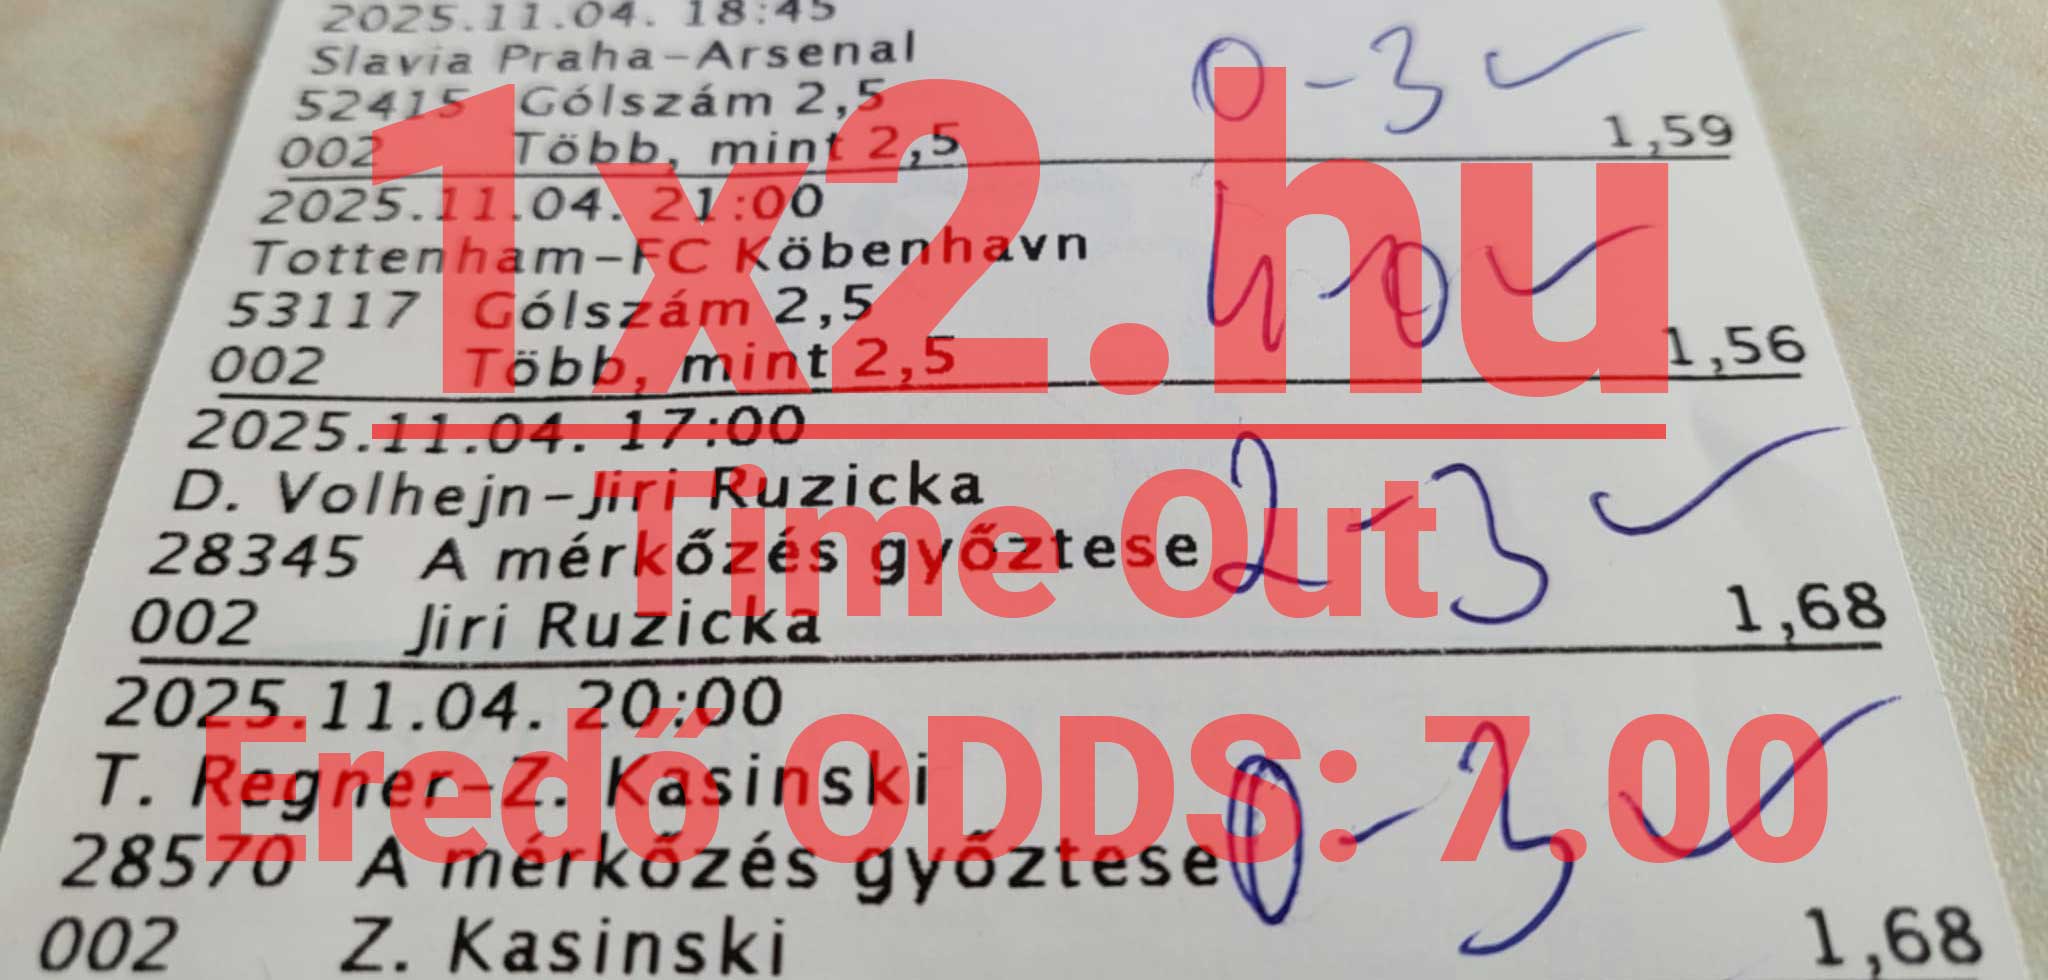 2025.11.04. 18:45
Slavia Praha-Arsenal 0-3 ✓
52415 Gólszám 2,5
002 Több, mint 2,5 1,59
2025.11.04. 21:00
Tottenham-FC Köbenhavn 4-0 ✓
53117 Gólszám 2,5
002 Több, mint 2,5 1,56
2025.11.04. 17:00
D. Volhejn-Jiri Ruzicka
28345 A mérkőzés győztese 2-3 ✓
002 Jiri Ruzicka 1,68
2025.11.04. 20:00
T. Regner-Z. Kasinski
28570 A mérkőzés győztese 0-3 ✓
002 Z. Kasinski 1,68
1x2.hu
Time Out
Eredő ODDS: 7.00